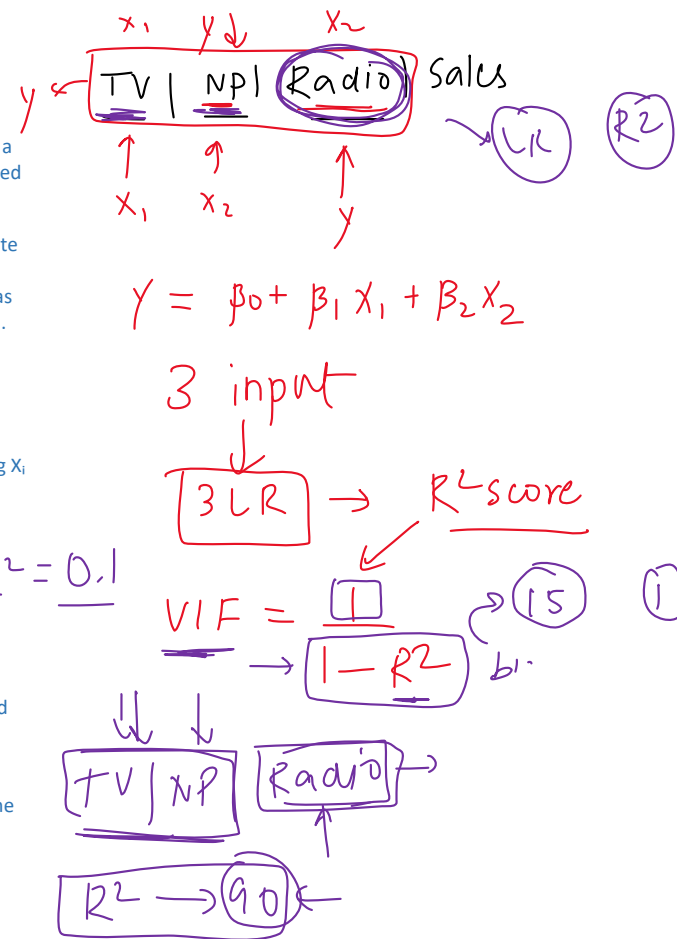 x₁ y↓ x₂
y ← TV | NP | Radio | Sales
LR R2
a
ed
X₁ x₂ y
te
as
.
Y = β0 + β₁ X₁ + β₂ X₂
3 input
g Xᵢ
3 LR → R² score
² = 0.1
VIF = 1 / 1 - R2
15
d
TV | NP Radio →
he
R² → 90 ←